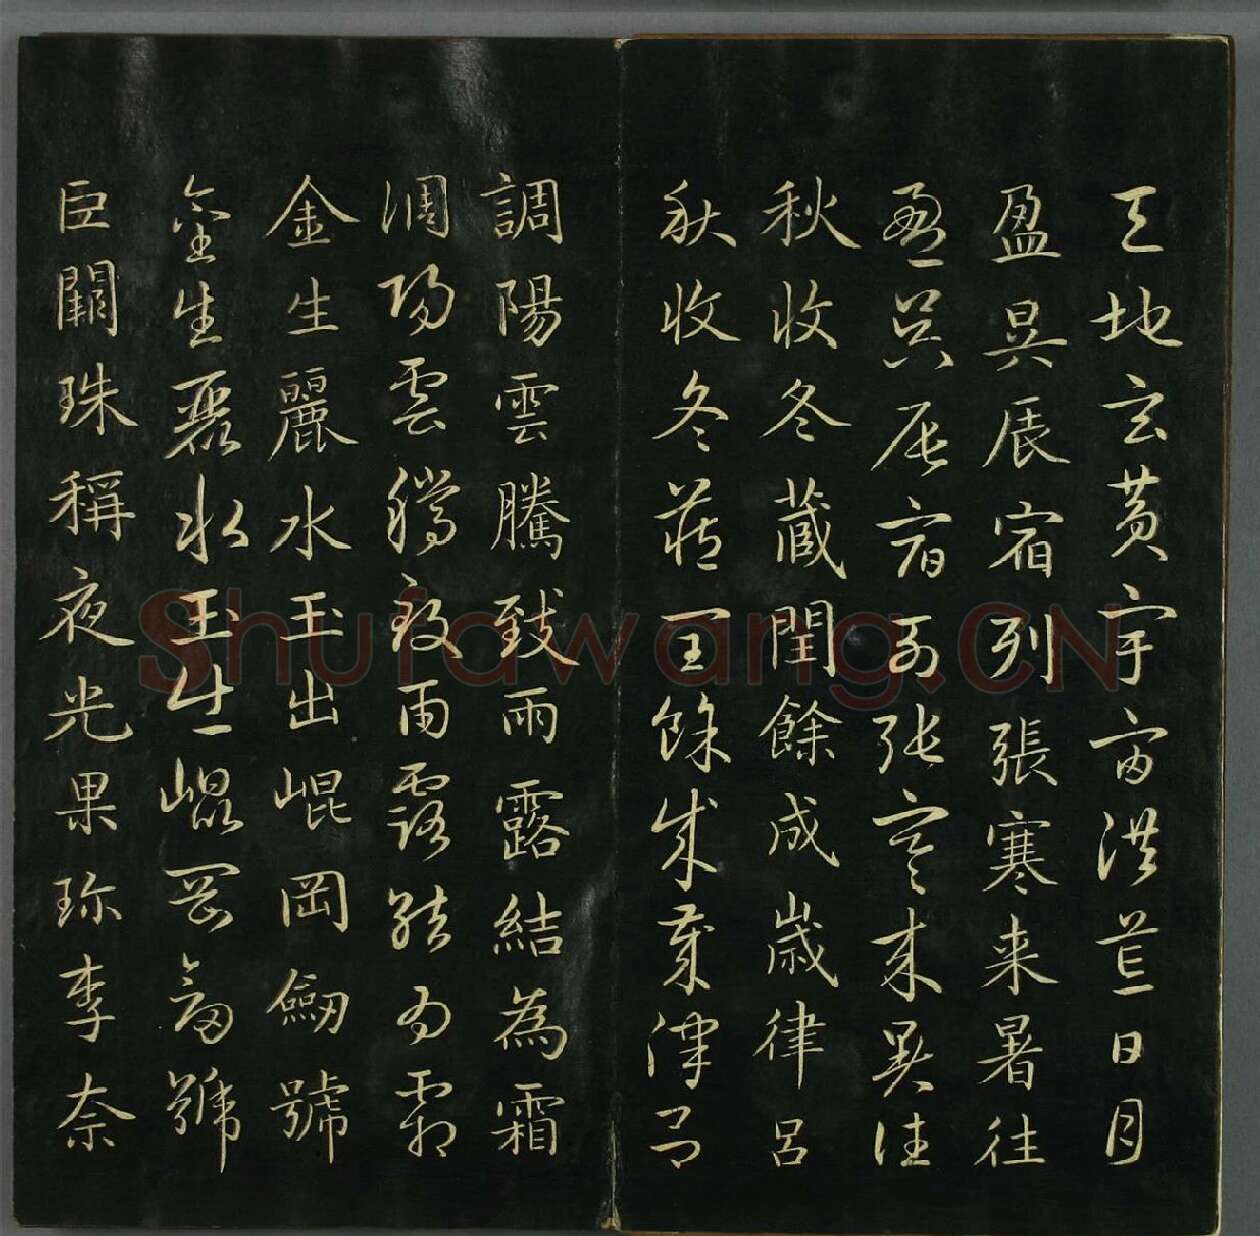 天地玄黃宇宙洪荒日月
盈昃辰宿列張寒来暑往
盈昃辰宿列張寒来暑往
秋收冬蔵閏餘成歳律呂
秋收冬蔵閏餘成歳律呂
調陽雲騰致雨露結為霜
調陽雲騰致雨露結為霜
金生麗水玉出崐岡劒號
金生麗水玉出崐岡劒號
巨闕珠稱夜光果珍李柰
Shufawang.CN